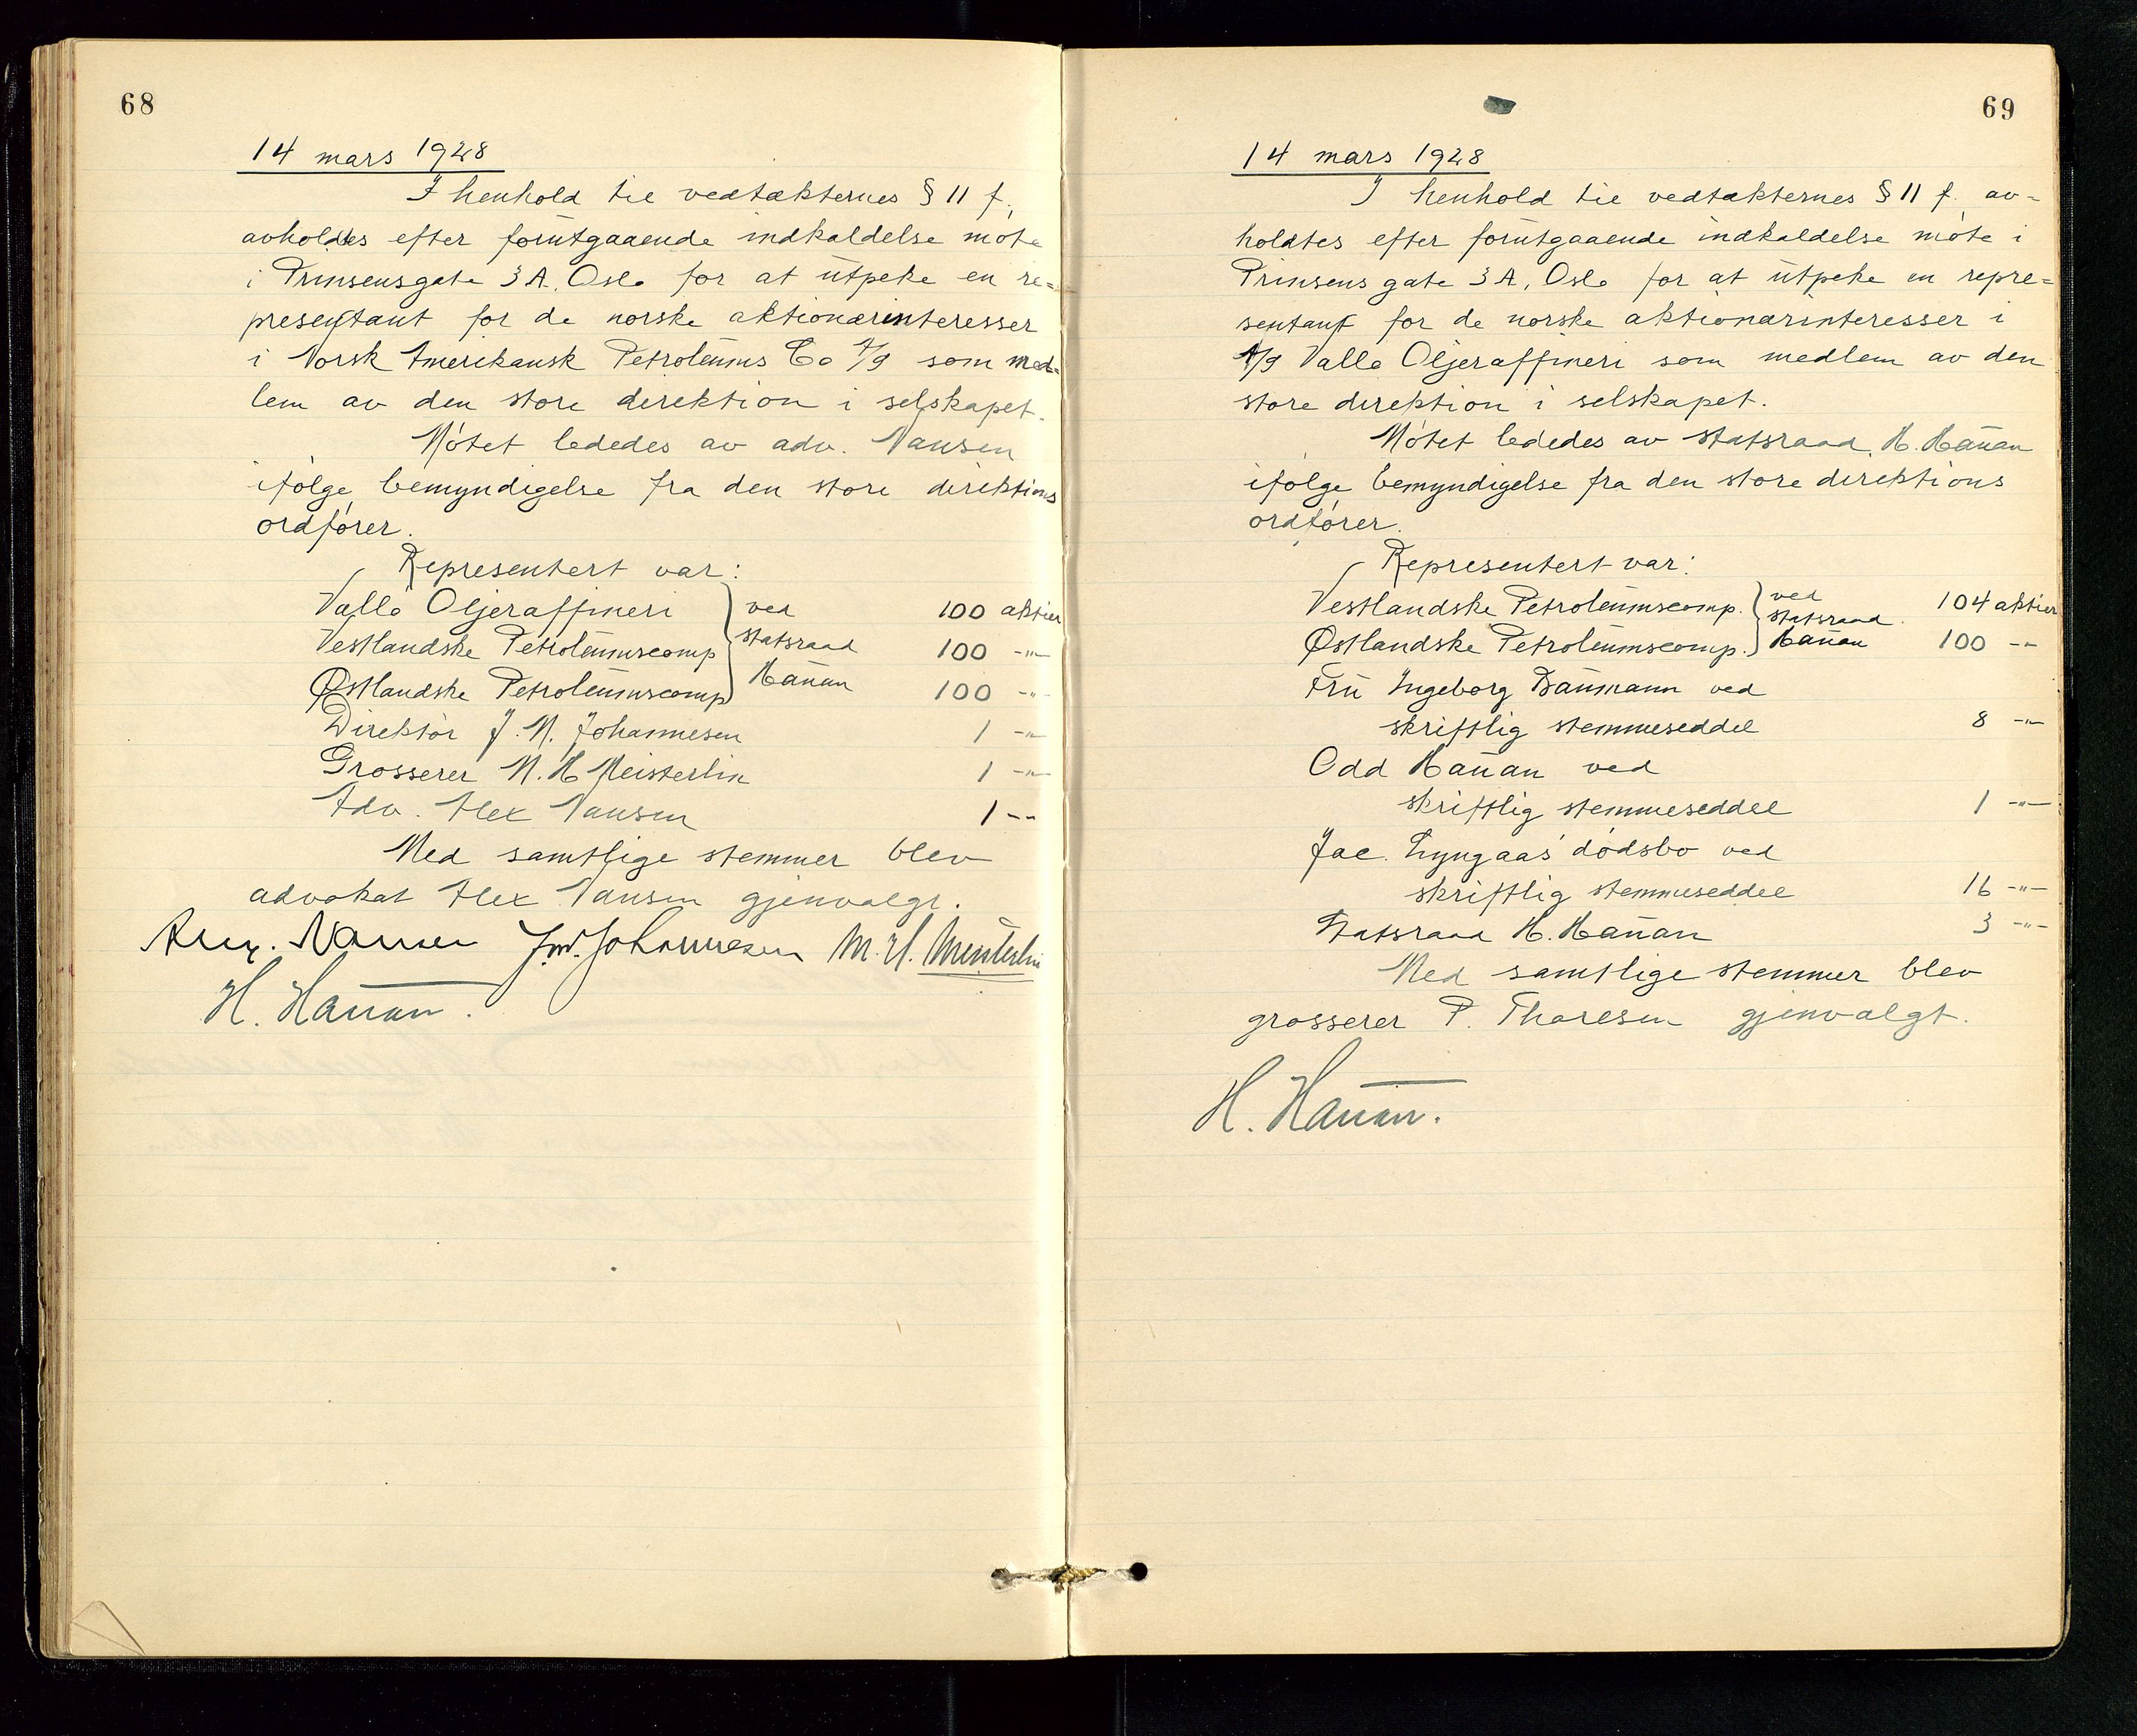 68
14 mars 1928
I henhold til vedtækternes § 11 f,
avholdes efter forutgaaende indkaldelse møte
i Prinsensgate 3 A. Oslo for at utpeke en re=
presentant for de norske aktionærinteresser
i Norsk Amerikansk Petroleums Co A/S som med=
lem av den store direktion i selskapet.
Møtet lededes av adv. Nansen
ifølge bemyndigelse fra den store direktions
ordfører.
Representert var:
Vallø Oljeraffineri } ved 100 aktier
Vestlandske Petroleumscomp } statsraad 100 -"-
Østlandske Petroleumscomp } Hauan 100 -"-
Direktør J. M. Johannesen 1 -"-
Grosserer M. H Meisterlin 1 -"-
Adv. Alex Nansen 1 -"-
Med samtlige stemmer blev
advokat Alex Nansen gjenvalgt.
Alex. Nansen J.M. Johannesen M. H. Meisterlin
H. Hauan.
69
14 mars 1928
I henhold til vedtækternes § 11 f. av=
holdtes efter forutgaaende indkaldelse møte i
Prinsens gate 3 A, Oslo for at utpeke en repre=
sentant for de norske aktionærinteresser i
A/S Vallø Oljeraffineri som medlem av den
store direktion i selskapet.
Møtet lededes av statsraad H. Hauan
ifølge bemyndigelse fra den store direktions
ordfører.
Representert var:
Vestlandske Petroleumscomp. } ved statsraad 104 aktier
Østlandske Petroleumscomp. } Hauan 100 -"-
Fru Ingeborg Baumann ved
skriftlig stemmeseddel 8 -"-
Odd Hauan ved
skriftlig stemmeseddel 1 -"-
Jac. Lyngaas' dødsbo ved
skriftlig stemmeseddel 16 -"-
Statsraad H. Hauan 3 -"-
Med samtlige stemmer blev
grosserer P. Thoresen gjenvalgt.
H. Hauan.